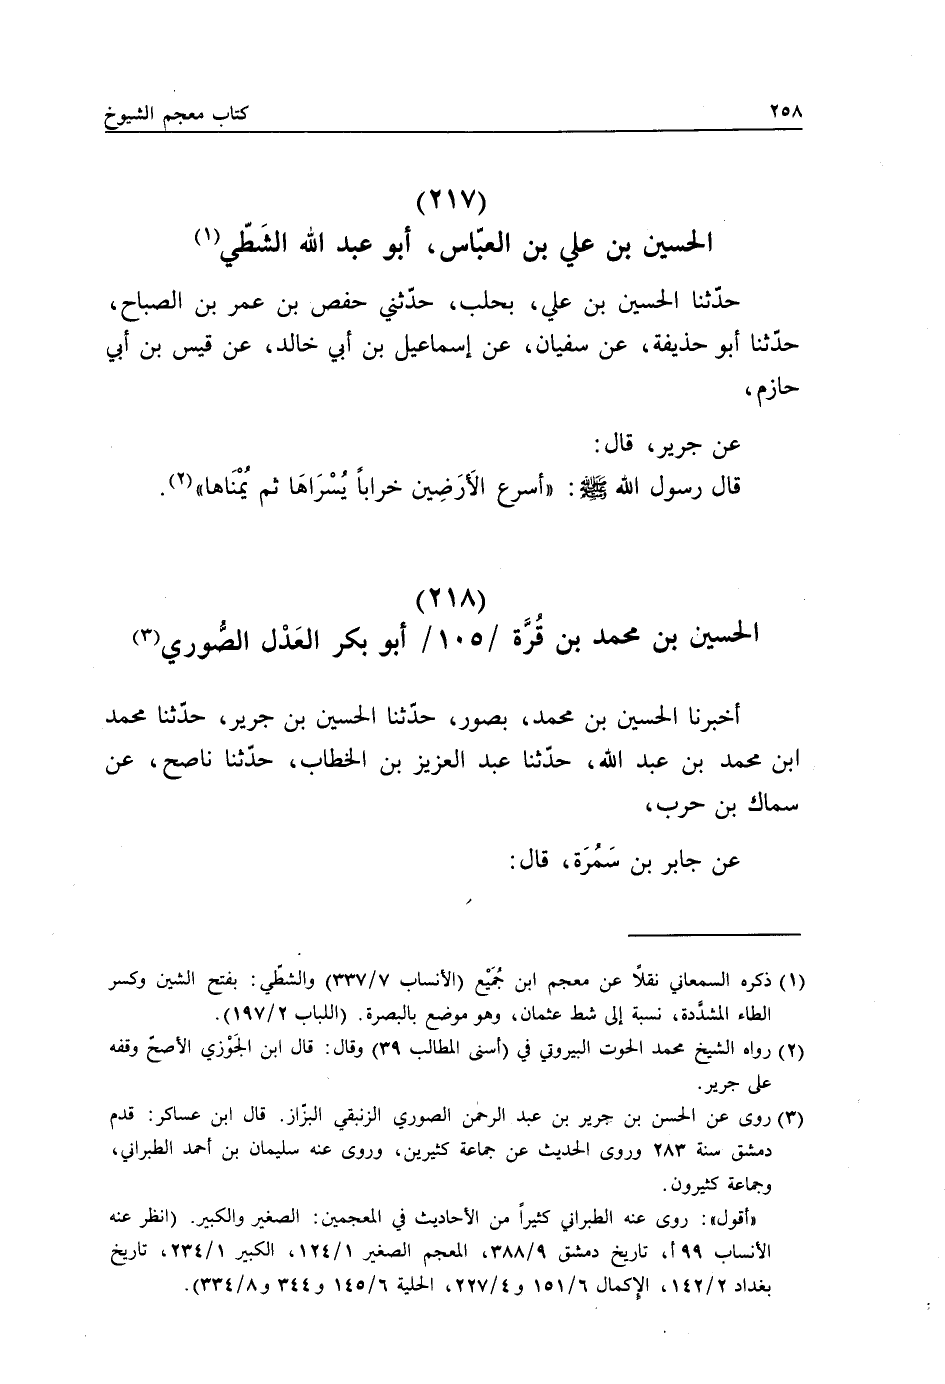 ٢٥٨ كتاب معجم الشيوخ
(٢١٧)
الحسين بن علي بن العبّاس، أبو عبد الله الشَطّي(١)
حدّثنا الحسين بن علي، بحلب، حدّثني حفص بن عمر بن الصباح،
حدّثنا أبو حذيفة، عن سفيان، عن إسماعيل بن أبي خالد، عن قيس بن أبي
حازم،
عن جرير، قال:
قال رسول الله ﷺ: «أسرع الأَرَضِين خراباً يُسْرَاهَا ثم يُمْنَاها»(٢).
(٢١٨)
الحسين بن محمد بن قُرَّة /١٠٥/ أبو بكر العَدْل الصُّوري(٣)
أخبرنا الحسين بن محمد، بصور، حدّثنا الحسين بن جرير، حدّثنا محمد
ابن محمد بن عبد الله، حدّثنا عبد العزيز بن الخطاب، حدّثنا ناصح، عن
سماك بن حرب،
عن جابر بن سَمُرَة، قال:
(١) ذكره السمعاني نقلًا عن معجم ابن جُمَيْع (الأنساب ٣٣٧/٧) والشطّي: بفتح الشين وكسر
الطاء المشدَّدة، نسبة إلى شط عثمان، وهو موضع بالبصرة. (اللباب ١٩٧/٢).
(٢) رواه الشيخ محمد الحوت البيروتي في (أسنى المطالب ٣٩) وقال: قال ابن الجَوْزي الأصحّ وقفه
على جرير.
(٣) روى عن الحسن بن جرير بن عبد الرحمن الصوري الزنبقي البزّاز. قال ابن عساكر: قدم
دمشق سنة ٢٨٣ وروى الحديث عن جماعة كثيرين، وروى عنه سليمان بن أحمد الطبراني،
وجماعة كثيرون.
«أقول»: روى عنه الطبراني كثيراً من الأحاديث في المعجمين: الصغير والكبير. (انظر عنه
الأنساب ٩٩ أ، تاريخ دمشق ٣٨٨/٩، المعجم الصغير ١٢٤/١، الكبير ٢٣٤/١، تاريخ
بغداد ١٤٢/٢، الإكمال ١٥١/٦ و٢٢٧/٤، الحلية ١٤٥/٦ و٣٤٤ و٣٣٤/٨).